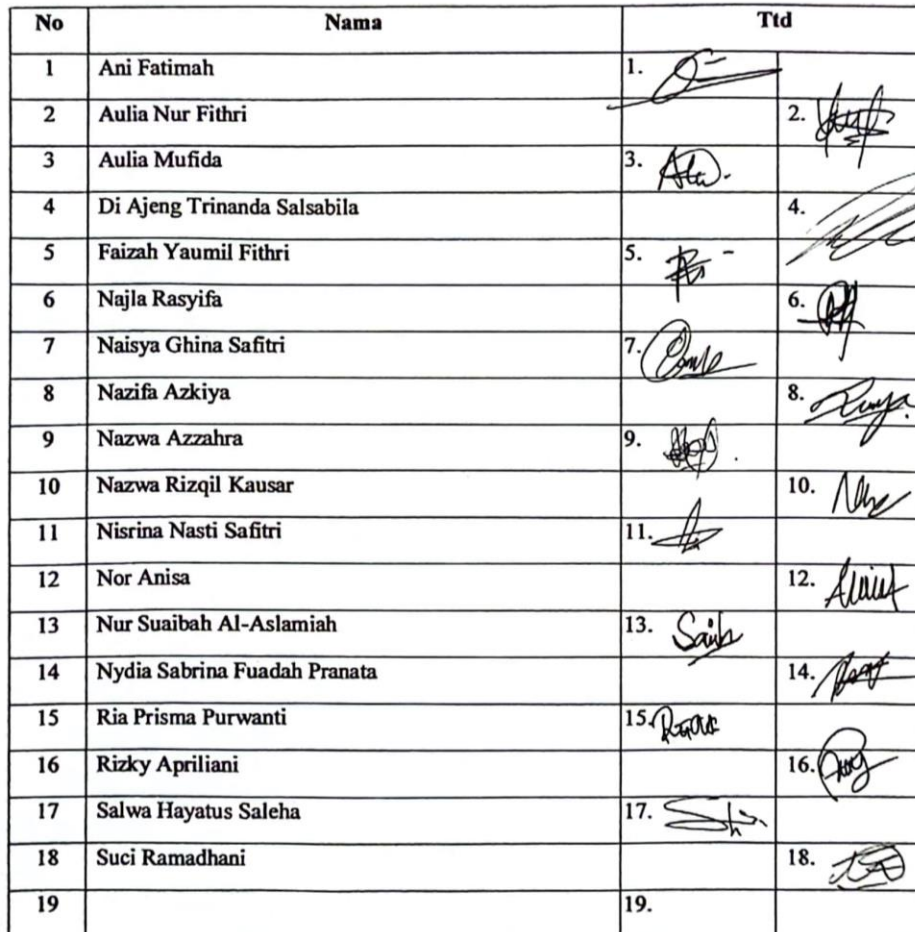 No Nama Ttd
1 Ani Fatimah 1.
2 Aulia Nur Fithri 2.
3 Aulia Mufida 3.
4 Di Ajeng Trinanda Salsabila 4.
5 Faizah Yaumil Fithri 5.
6 Najla Rasyifa 6.
7 Naisya Ghina Safitri 7.
8 Nazifa Azkiya 8.
9 Nazwa Azzahra 9.
10 Nazwa Rizqil Kausar 10.
11 Nisrina Nasti Safitri 11.
12 Nor Anisa 12.
13 Nur Suaibah Al-Aslamiah 13.
14 Nydia Sabrina Fuadah Pranata 14.
15 Ria Prisma Purwanti 15.
16 Rizky Apriliani 16.
17 Salwa Hayatus Saleha 17.
18 Suci Ramadhani 18.
19 19.